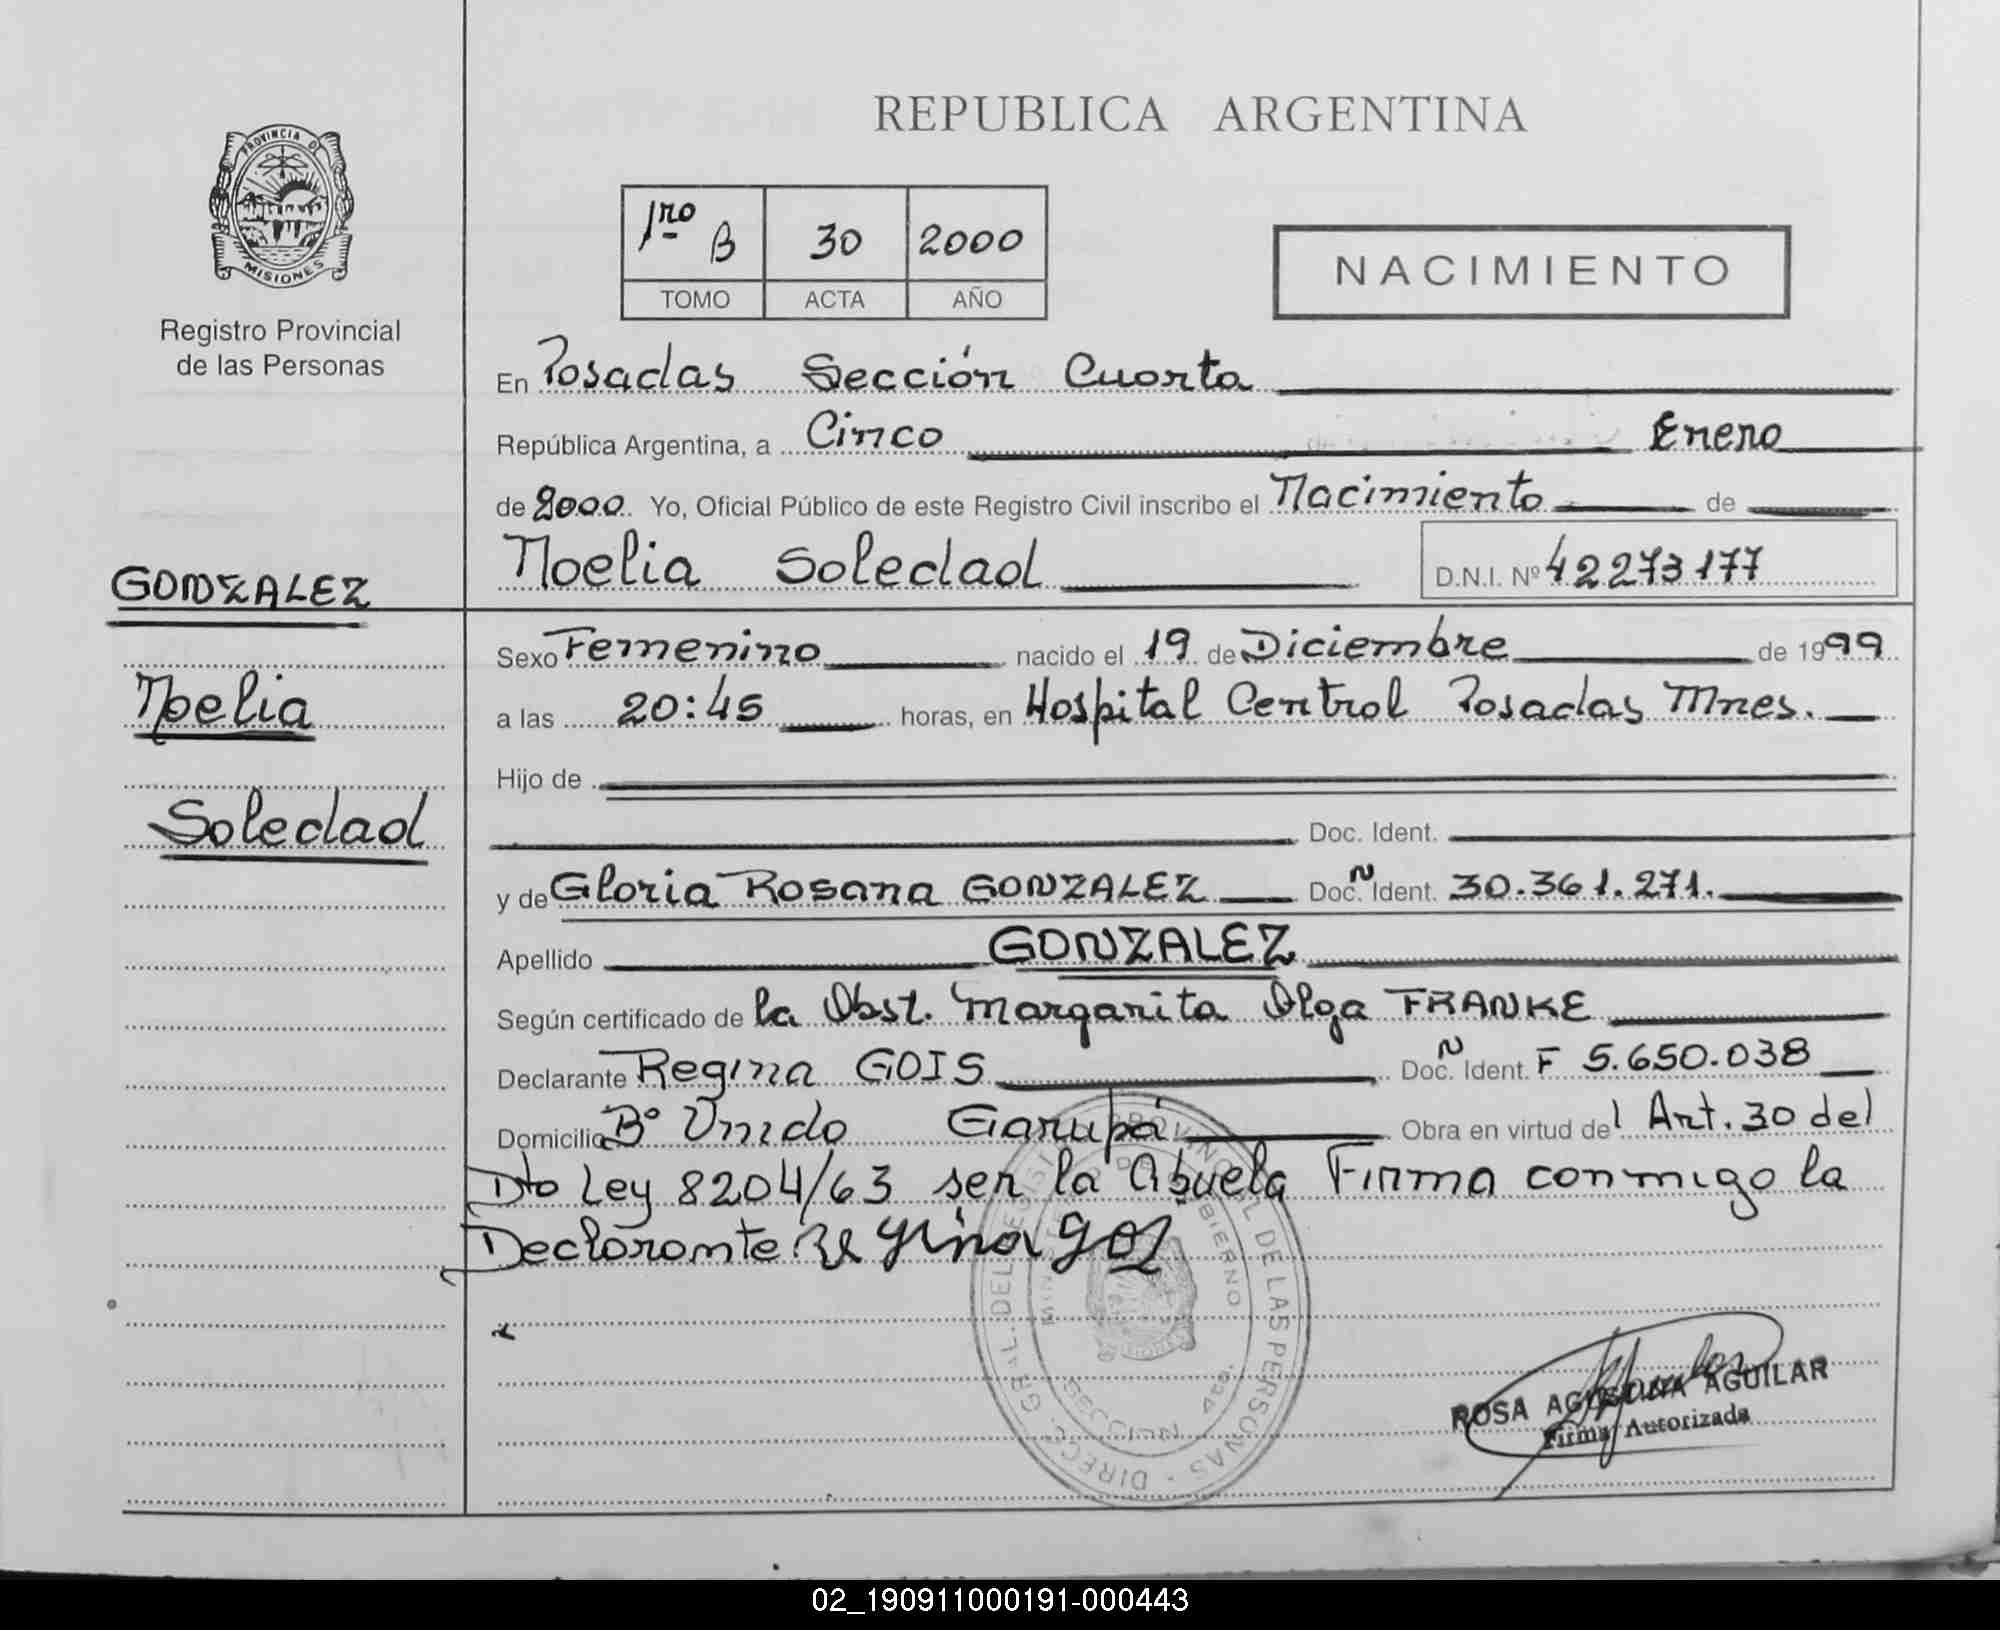 REPUBLICA ARGENTINA
PROVINCIA DE
MISIONES
Registro Provincial
de las Personas
1ro B 30 2000
TOMO ACTA AÑO
NACIMIENTO
En Posadas Sección Cuarta
República Argentina, a Cinco Enero
de 2000. Yo, Oficial Público de este Registro Civil inscribo el Nacimiento de
Noelia Soledad D.N.I. Nº 42273177
GONZALEZ
Noelia
Soledad
Sexo Femenino nacido el 19 de Diciembre de 1999
a las 20:45 horas, en Hospital Central Posadas Mnes.
Hijo de
Doc. Ident.
y de Gloria Rosana GONZALEZ Doc. Ident. N 30.361.271.
Apellido GONZALEZ
Según certificado de la Obst. Margarita Olga FRANKE
Declarante Regina GOIS Doc. Ident. N F 5.650.038
Domicilio Bº Unido Garupá Obra en virtud del Art. 30 del
Dto Ley 8204/63 ser la Abuela Firma conmigo la
Declarante Regina
DIREC. GRAL. DEL REGISTRO PROVINCIAL DE LAS PERSONAS
GOBIERNO
SECCION 4ta.
ROSA AGUSTINA AGUILAR
Firma Autorizada
02_190911000191-000443